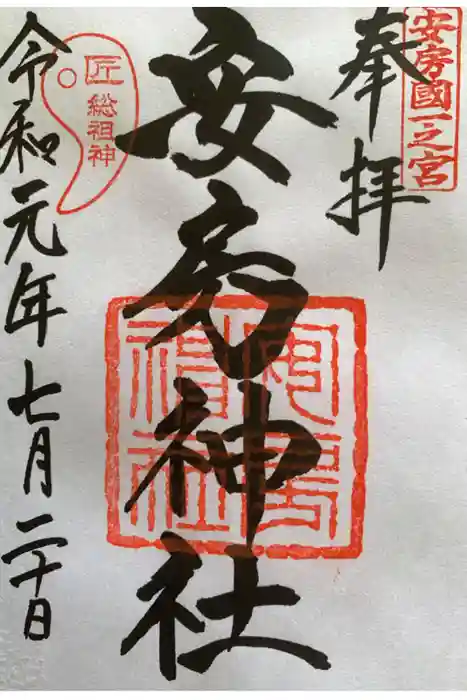 安房國一之宮
奉拝
安房神社
安房
神社
匠総祖神
令和元年七月二十日